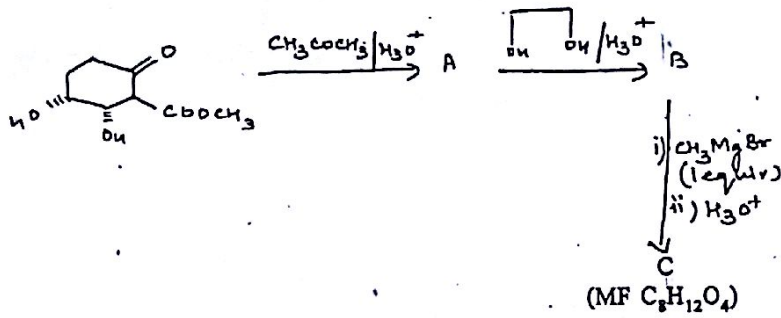 O
HO
OH
COOCH3
CH3COCH3/H3O+
A
OH OH/H3O+
B
i) CH3MgBr
(1equiv)
ii) H3O+
C
(MF C8H12O4)